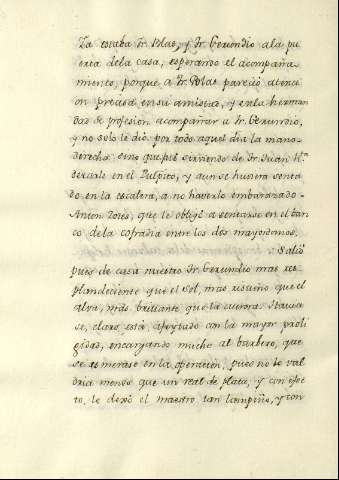 Ya estaba Fr. Blas, y Fr. Gerundio a la pu
erta dela casa, esperando el acompaña
miento, porque a Fr. Blas pareció aten
cion precisa en su amistad, y enla herman
dad de profesion acompañar a Fr. Gerundio,
y no solo le dió por todo aquel dia la mano
derecha sino que fué sirviendo de Fr. Juan
dexarle en el Pulpito, y aun se huviera senta
do en la escalera, a no haverlo embarazado
Anton Zotes, que le obligó a sentarse en el ban
co de la cofradia entre los dos mayordomos.
Salió
pues de casa nuestro Fr. Gerundio mas res
plandeciente que el Sol, mas risueño que el
alva, más brillante que la aurora. Haviа
se, claro está, afeytado con la mayor proli
gidad, encargando mucho al barbero, que
se esmerase en la operación, pues no le val
dria menos que un real de plata, y con efec
to, le dexó el maestro tan lampiño, y con